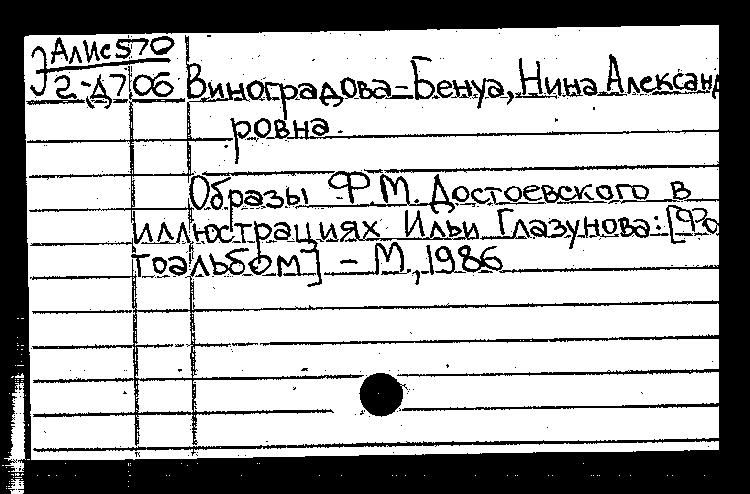 Алис570
2-Д706
Виноградова-Бенуа, Нина Александ
ровна.
Образы Ф.М. Достоевского в
иллюстрациях Ильи Глазунова: [Фо
тоальбом] - М., 1986